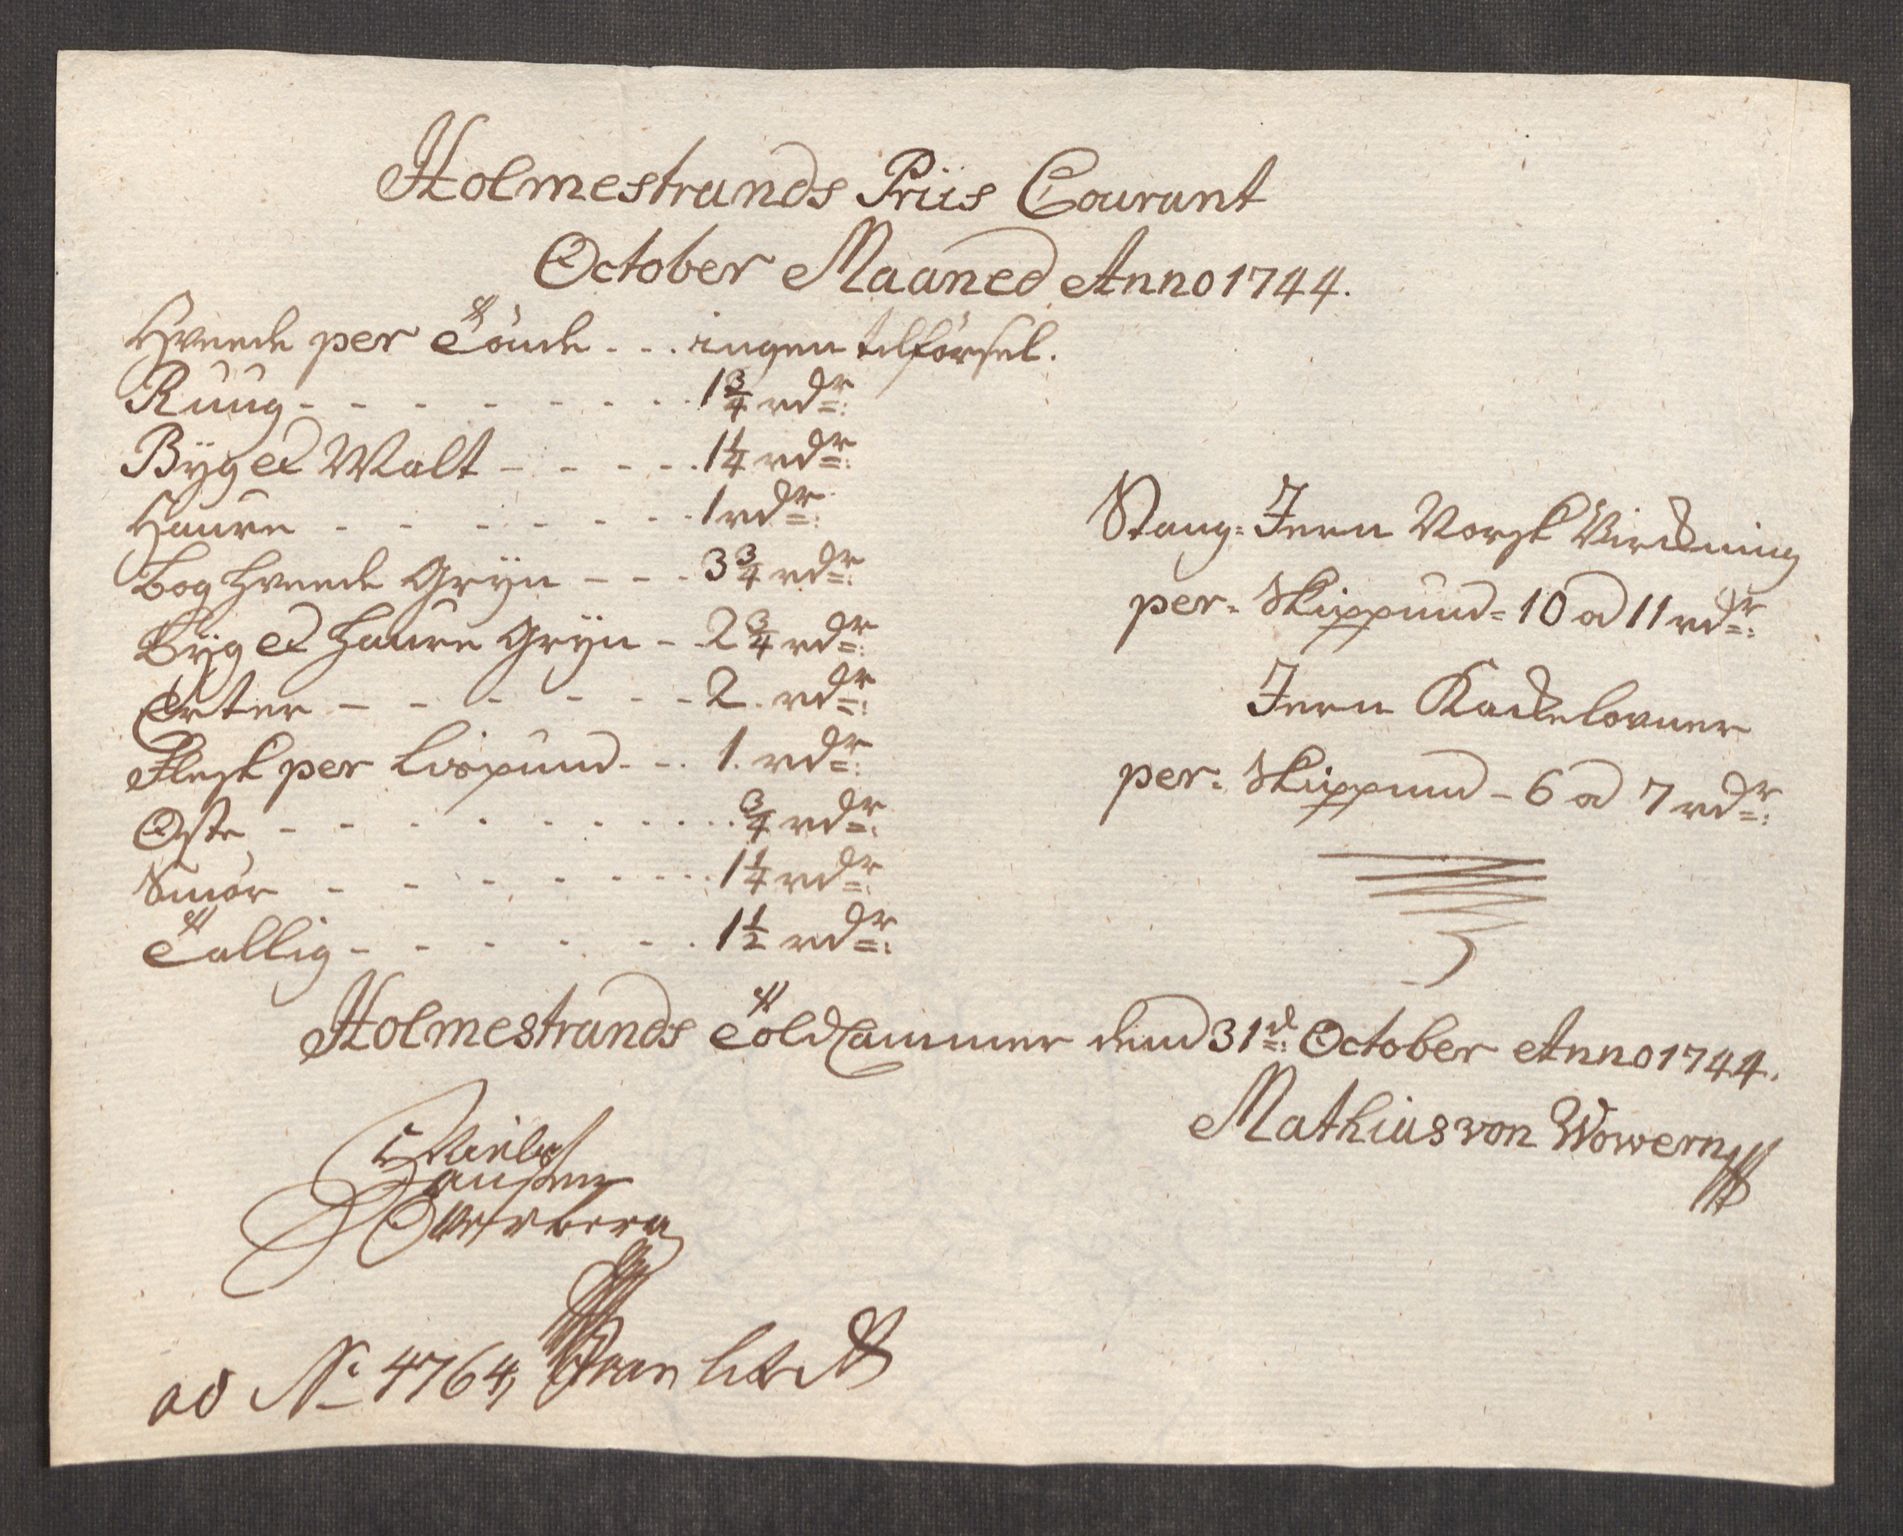 Holmestrands Priis Courant
October Maaned Anno 1744.
Hveede per Tönde - - . ingen tilförsel.
Ruug - - - - - - - - 1 3/4 rdr:
Byg et Malt - - - - - 1 1/4 rdr:
Haure - - - - - - - 1 rdr:
Bog Hveede Gryn - - - 3 3/4 rdr:
Byg et Haure Gryn - - 2 3/4 rdr:
Erter - - - - - - - 2. rdr:
Flesk per Lispund - - . 1. rdr:
Oste - - - - - - - - - 3/4 rdr:
Smör - - - - - - - - 1 1/4 rdr:
Tallig - - - - - - . 1 1/2 rdr:
Stang-Jern Norsk Virckning
per- Skippund - 10 a 11 rdr:
Jern Kackelovner
per- Skippund - 6 a 7 rdr:
Holmestrands Told Cammer dend 31d: October Anno 1744.
Mathias von Wowern
Niels
Hansen
Overberg
ad No 4764,